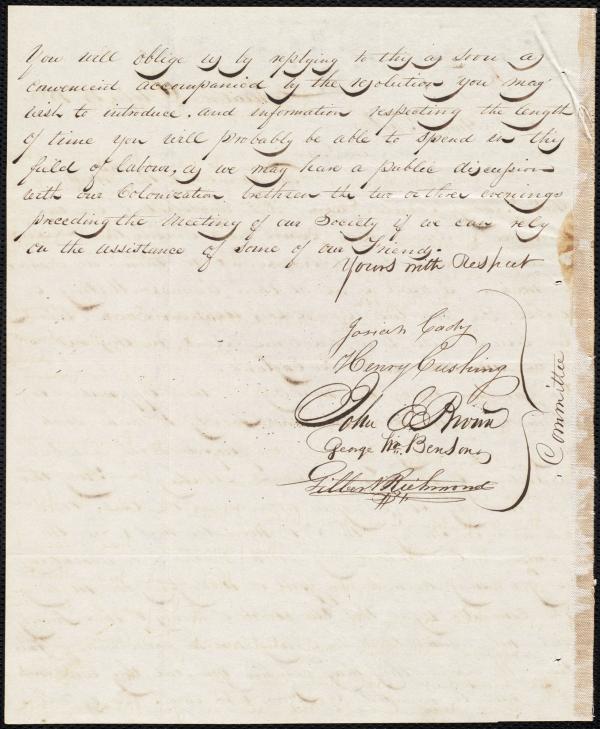 You will oblige us by replying to this as soon as
convenient accompanied by the resolution you may
wish to introduce. and information respecting the length
of time you will probably be able to spend in this
field of labour, as we may have a public discussion
with our Colonization brethren the two or three evenings
preceding the Meeting of our Society if we can rely
on the assistance of some of our Friends.
Yours with Respect
Josiah Cady
Henry Cushing
John E. Brown
George Wm. Benson
Gilbert Richmond
Committee